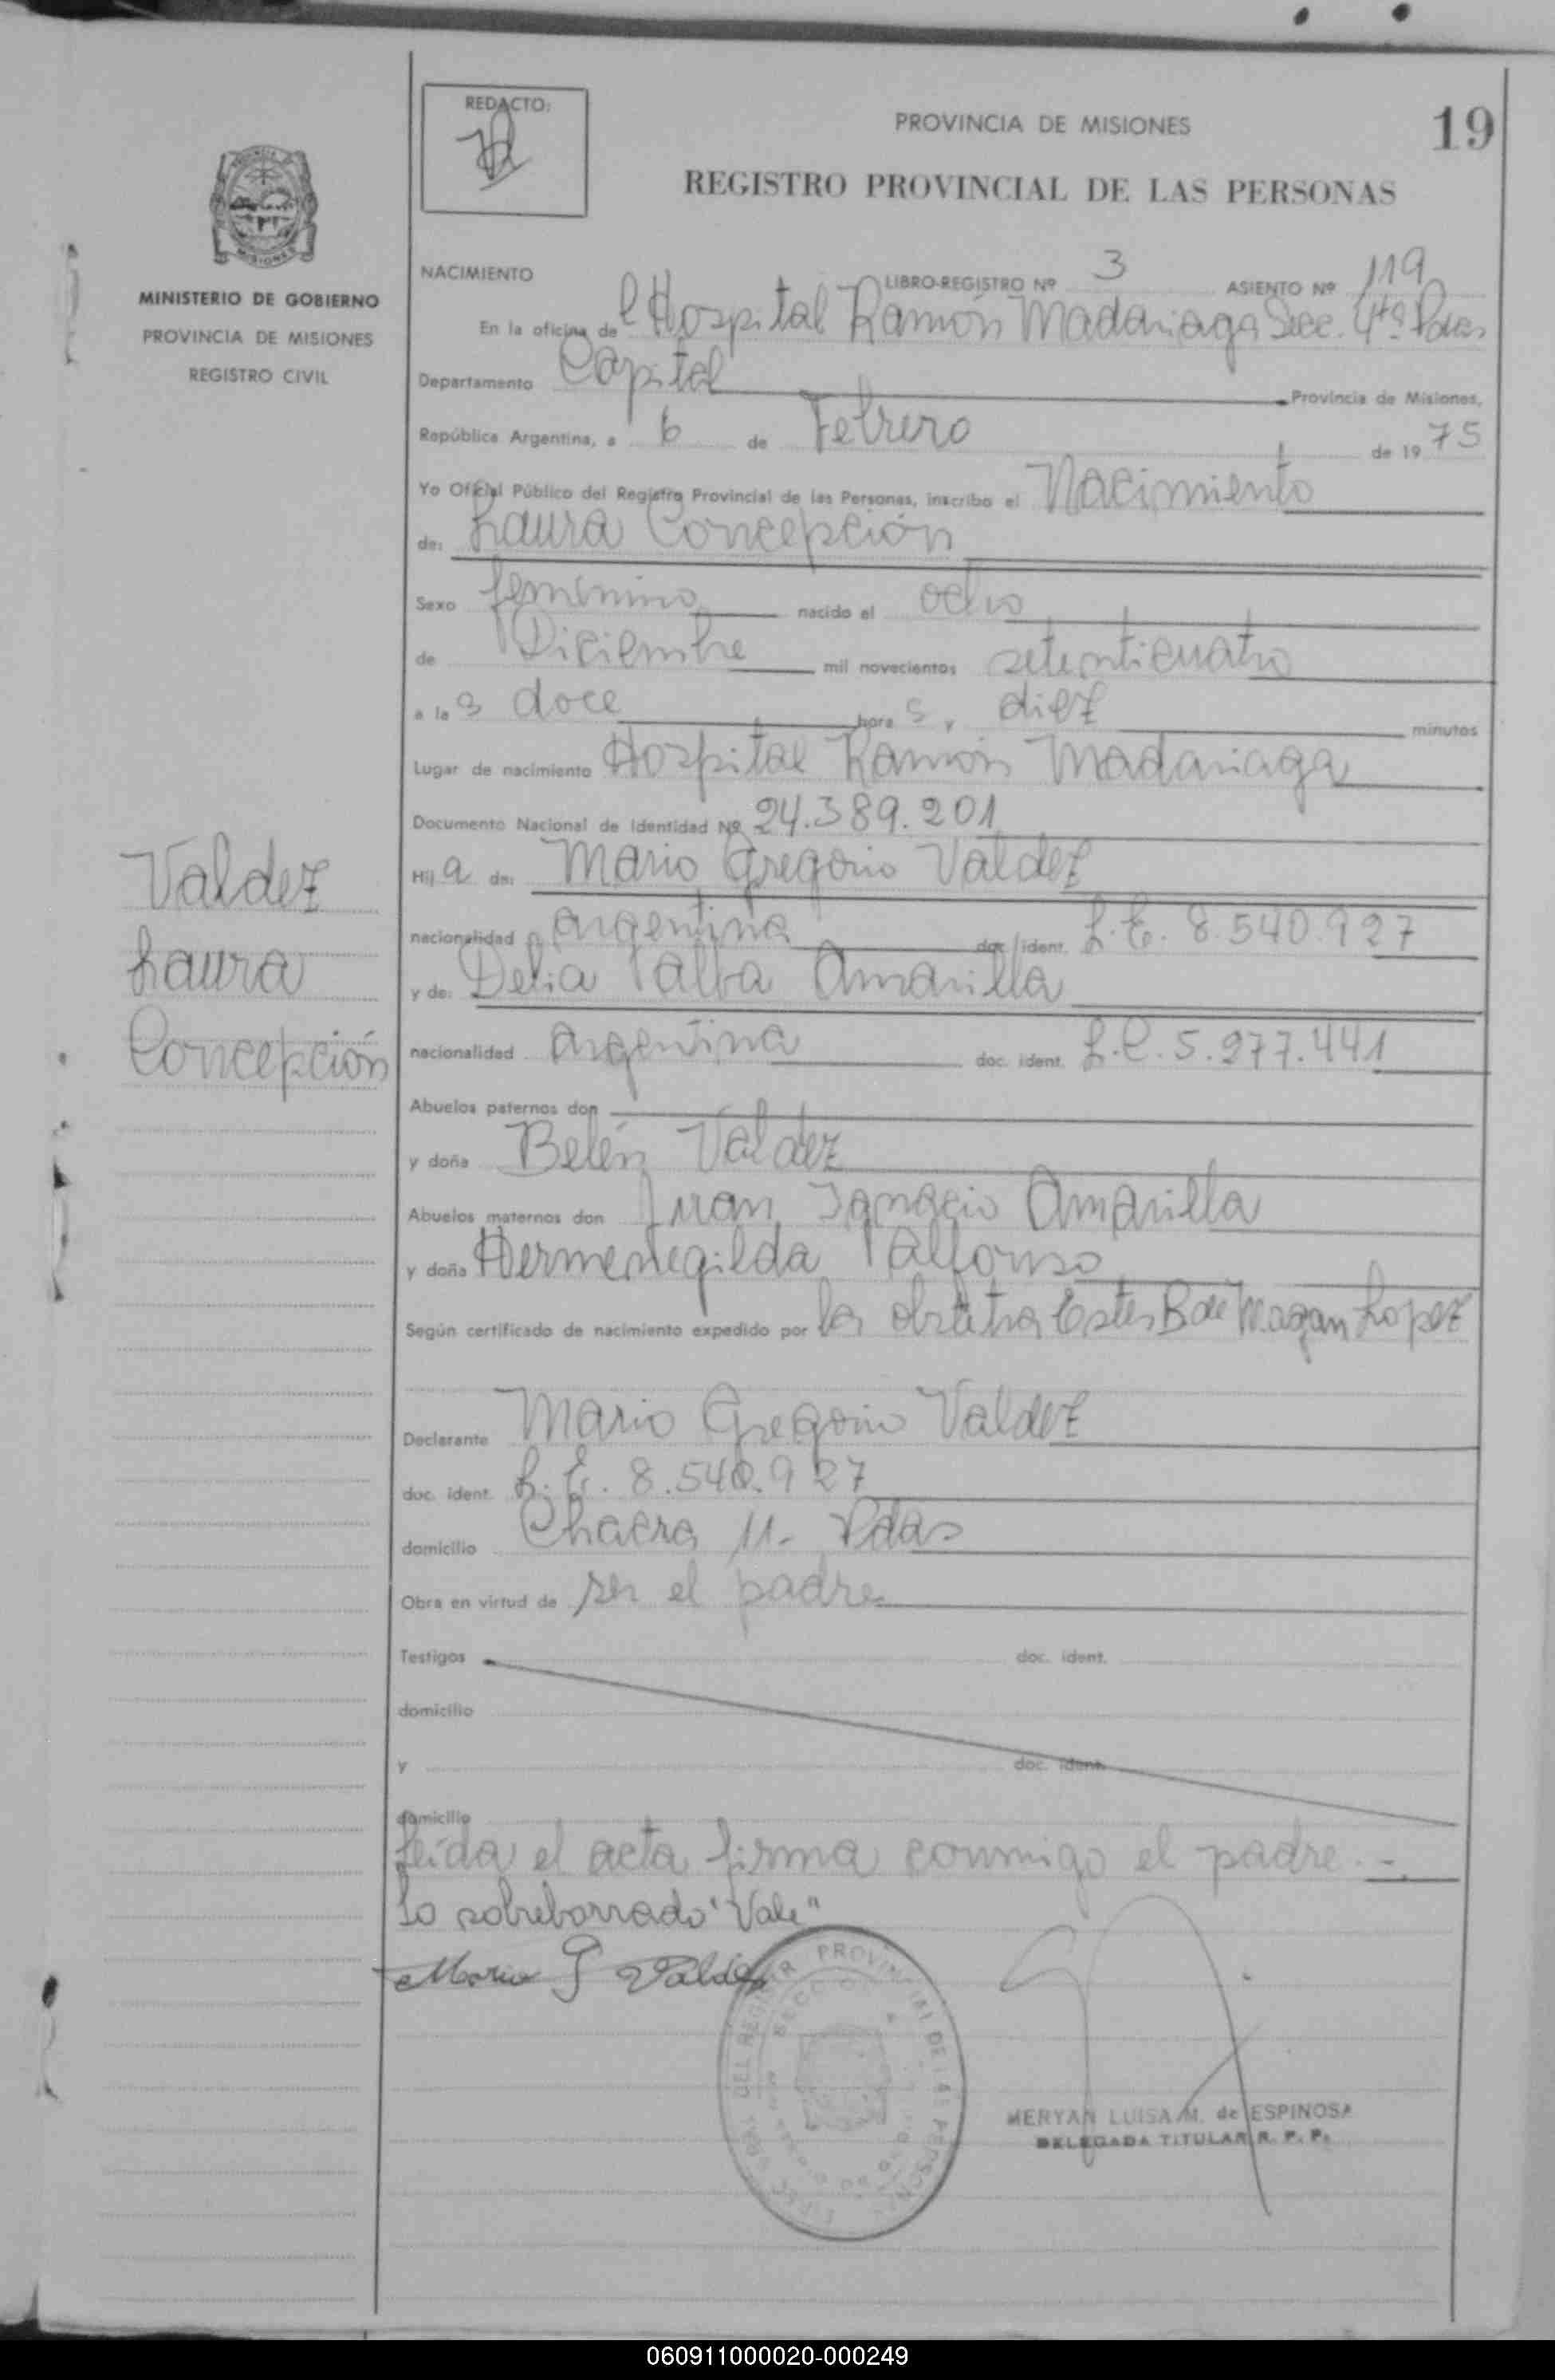 REDACTO:
PROVINCIA DE MISIONES
19
REGISTRO PROVINCIAL DE LAS PERSONAS
MISIONES
MINISTERIO DE GOBIERNO
PROVINCIA DE MISIONES
REGISTRO CIVIL
NACIMIENTO LIBRO-REGISTRO Nº 3 ASIENTO Nº 119
En la oficina del Hospital Ramón Madariaga Secc. 4ta Pdas
Departamento Capital Provincia de Misiones,
República Argentina, a 6 de Febrero de 1975
Yo Oficial Público del Registro Provincial de las Personas, inscribo el Nacimiento
de: Laura Concepción
Sexo femenino nacido el ocho
de Diciembre mil novecientos setenticuatro
a las doce horas y diez minutos
Lugar de nacimiento Hospital Ramón Madariaga
Documento Nacional de Identidad Nº 24.389.201
Hija de: Mario Gregorio Valdez
nacionalidad argentina doc. ident. L.E. 8.540.927
y de: Delia Alba Amarilla
nacionalidad argentina doc. ident. L.C. 5.977.441
Abuelos paternos don
y doña Belén Valdez
Abuelos maternos don Juan Ignacio Amarilla
y doña Hermenegilda Alfonso
Según certificado de nacimiento expedido por la obstetra Ester B de Magan Lopez
Declarante Mario Gregorio Valdez
doc. ident. L.E. 8.540.927
domicilio Chacra 11- Pdas
Obra en virtud de ser el padre
Testigos doc. ident.
domicilio
y doc. ident.
domicilio
Leída el acta firma conmigo el padre.-
Lo sobreborrado "Vale"
Mario G Valdez
Valdez
Laura
Concepción
DEL REGISTR PROVINCIAL DE LAS PERSONAS
SECCION
MERYAN LUISA M. de ESPINOSA
DELEGADA TITULAR R. P. P.
060911000020-000249